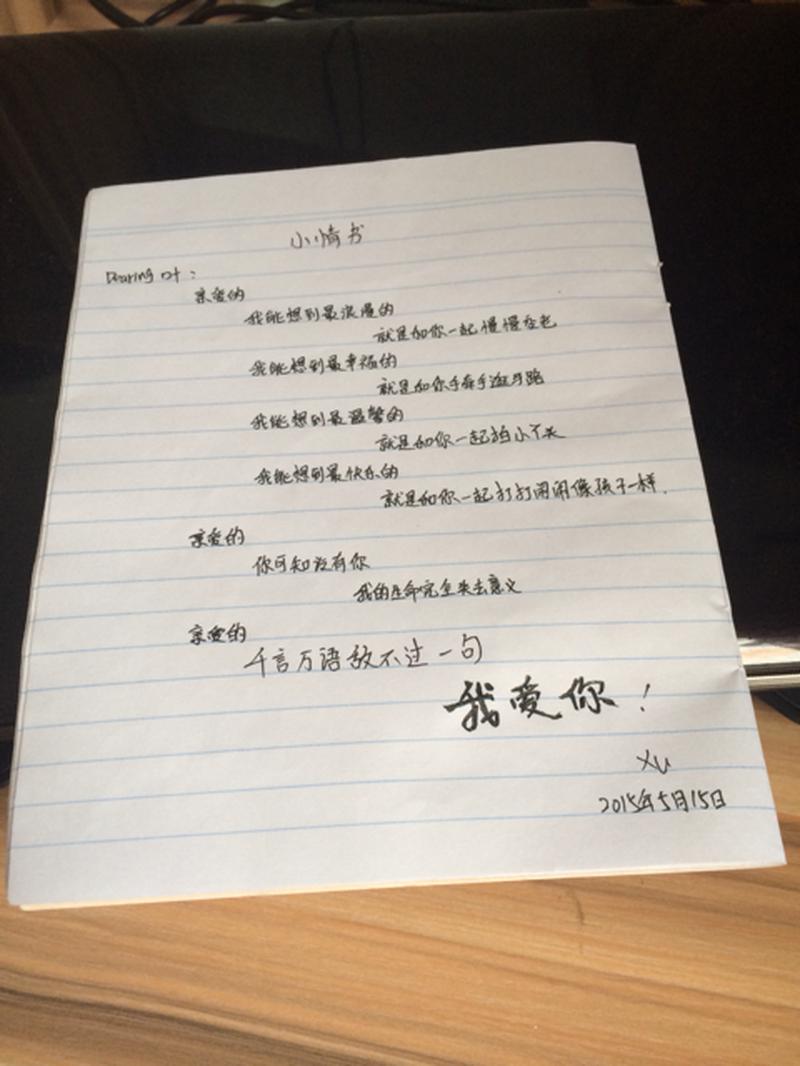 小情书
Dearing 叶:
亲爱的
我能想到最浪漫的
就是和你一起慢慢变老
我能想到最幸福的
就是和你手牵手逛马路
我能想到最温馨的
就是和你一起拍小丫头
我能想到最快乐的
就是和你一起打打闹闹像孩子一样.
亲爱的
你可知没有你
我的生命完全失去意义
亲爱的
千言万语敌不过一句
我爱你!
XU
2015年5月15日